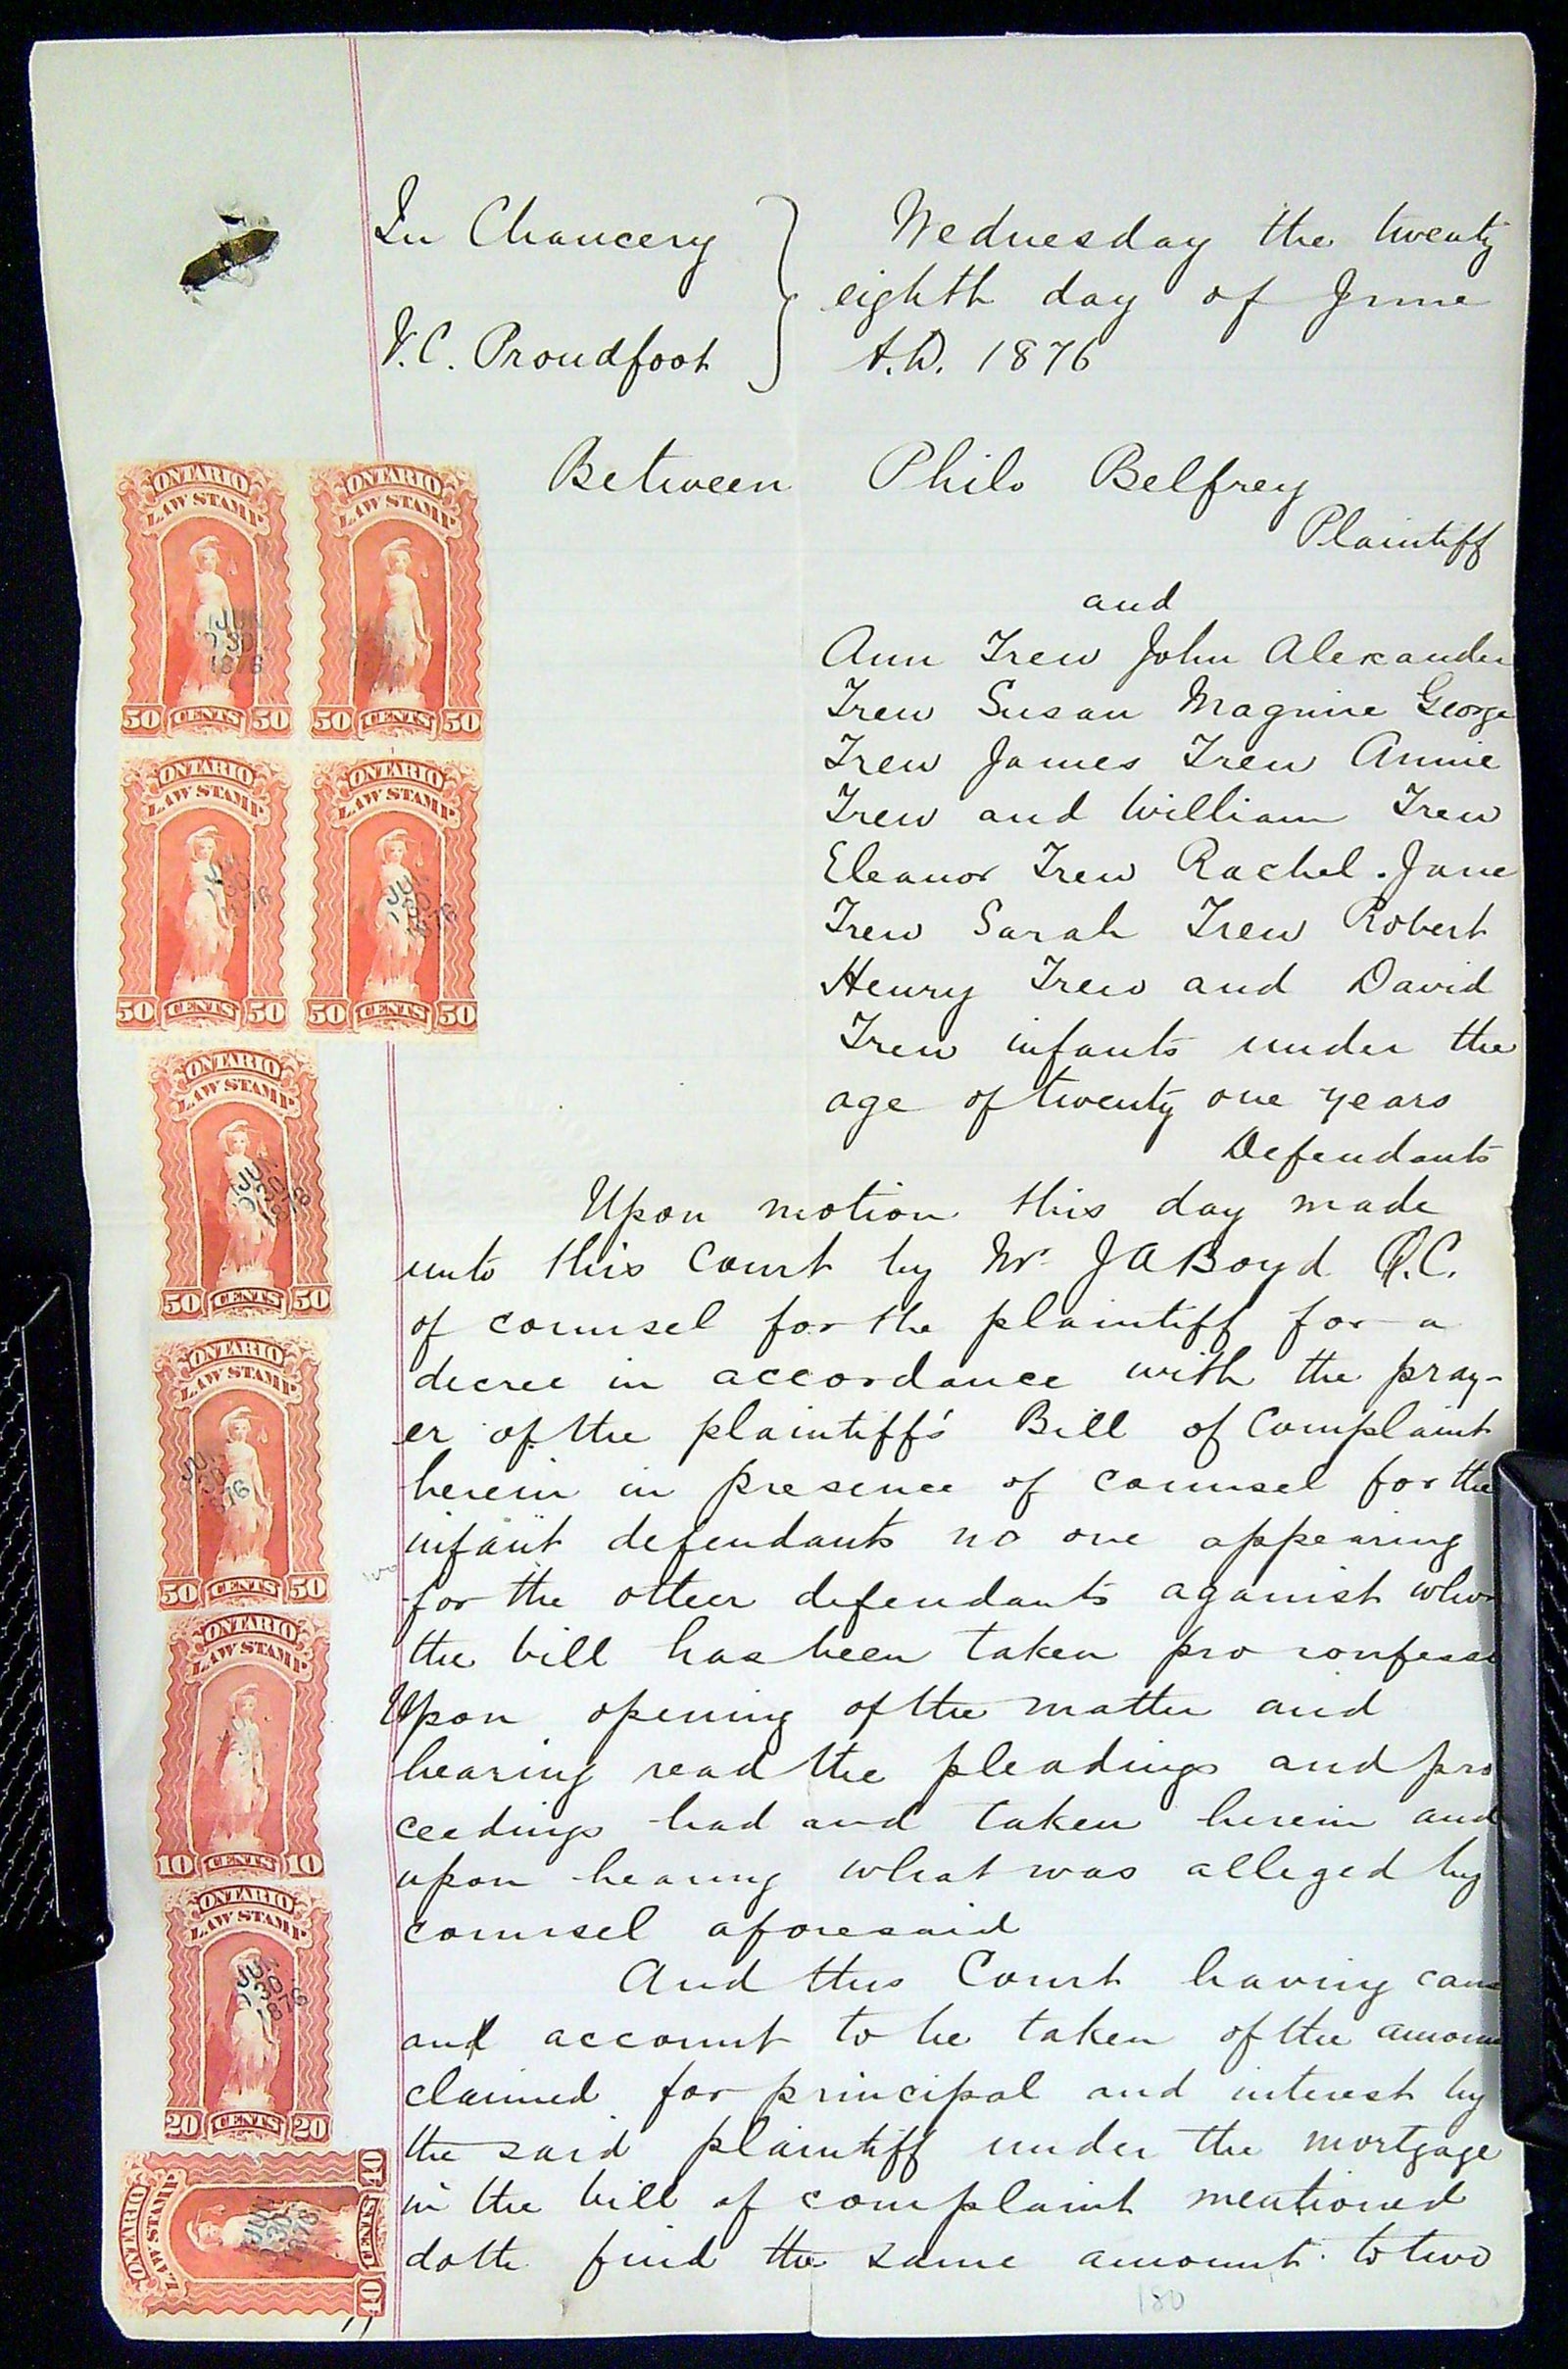 In Chancery
V.C. Proudfoot
Wednesday the twenty
eighth day of June
A.D. 1876
Between Philo Belfrey
Plaintiff
and
Ann Trew John Alexander
Trew Susan Maguire George
Trew James Trew Annie
Trew and William Trew
Eleanor Trew Rachel Jane
Trew Sarah Trew Robert
Henry Trew and David
Trew infants under the
age of twenty one years
Defendants
Upon motion this day made
unto this Court by Mr J A Boyd Q.C.
of counsel for the plaintiff for a
decree in accordance with the pray-
er of the plaintiff's Bill of Complaint
herein in presence of counsel for the
infant defendants no one appearing
for the other defendants against who
the bill has been taken pro confess
Upon opening of the matter and
hearing read the pleadings and pro
ceedings had and taken herein and
upon hearing what was alleged by
counsel aforesaid
And this Court having caus
and account to be taken of the amoun
claimed for principal and interest by
the said plaintiff under the mortgage
in the bill of complaint mentioned
doth find the same amount to two
180
ONTARIO
LAW STAMP
50 CENTS 50
JUN
30
1876
ONTARIO
LAW STAMP
50 CENTS 50
ONTARIO
LAW STAMP
50 CENTS 50
JUN
30
1876
ONTARIO
LAW STAMP
50 CENTS 50
JUN
30
1876
ONTARIO
LAW STAMP
50 CENTS 50
JUN
30
1876
ONTARIO
LAW STAMP
50 CENTS 50
JUN
30
1876
ONTARIO
LAW STAMP
10 CENTS 10
ONTARIO
LAW STAMP
20 CENTS 20
JUN
30
1876
ONTARIO
LAW STAMP
40 CENTS 40
JUN
30
1876